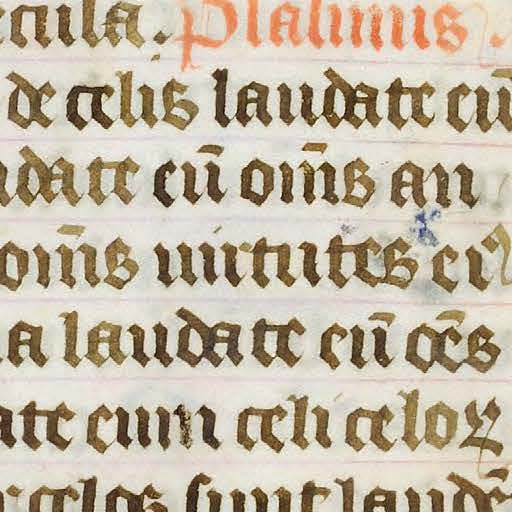 cula. Psalmus.
de celis laudate eū
date eū om̄s an
om̄s uirtutes ei⁹
a laudate eū oēs
ate eum celi celoꝝ
celos sunt laudē